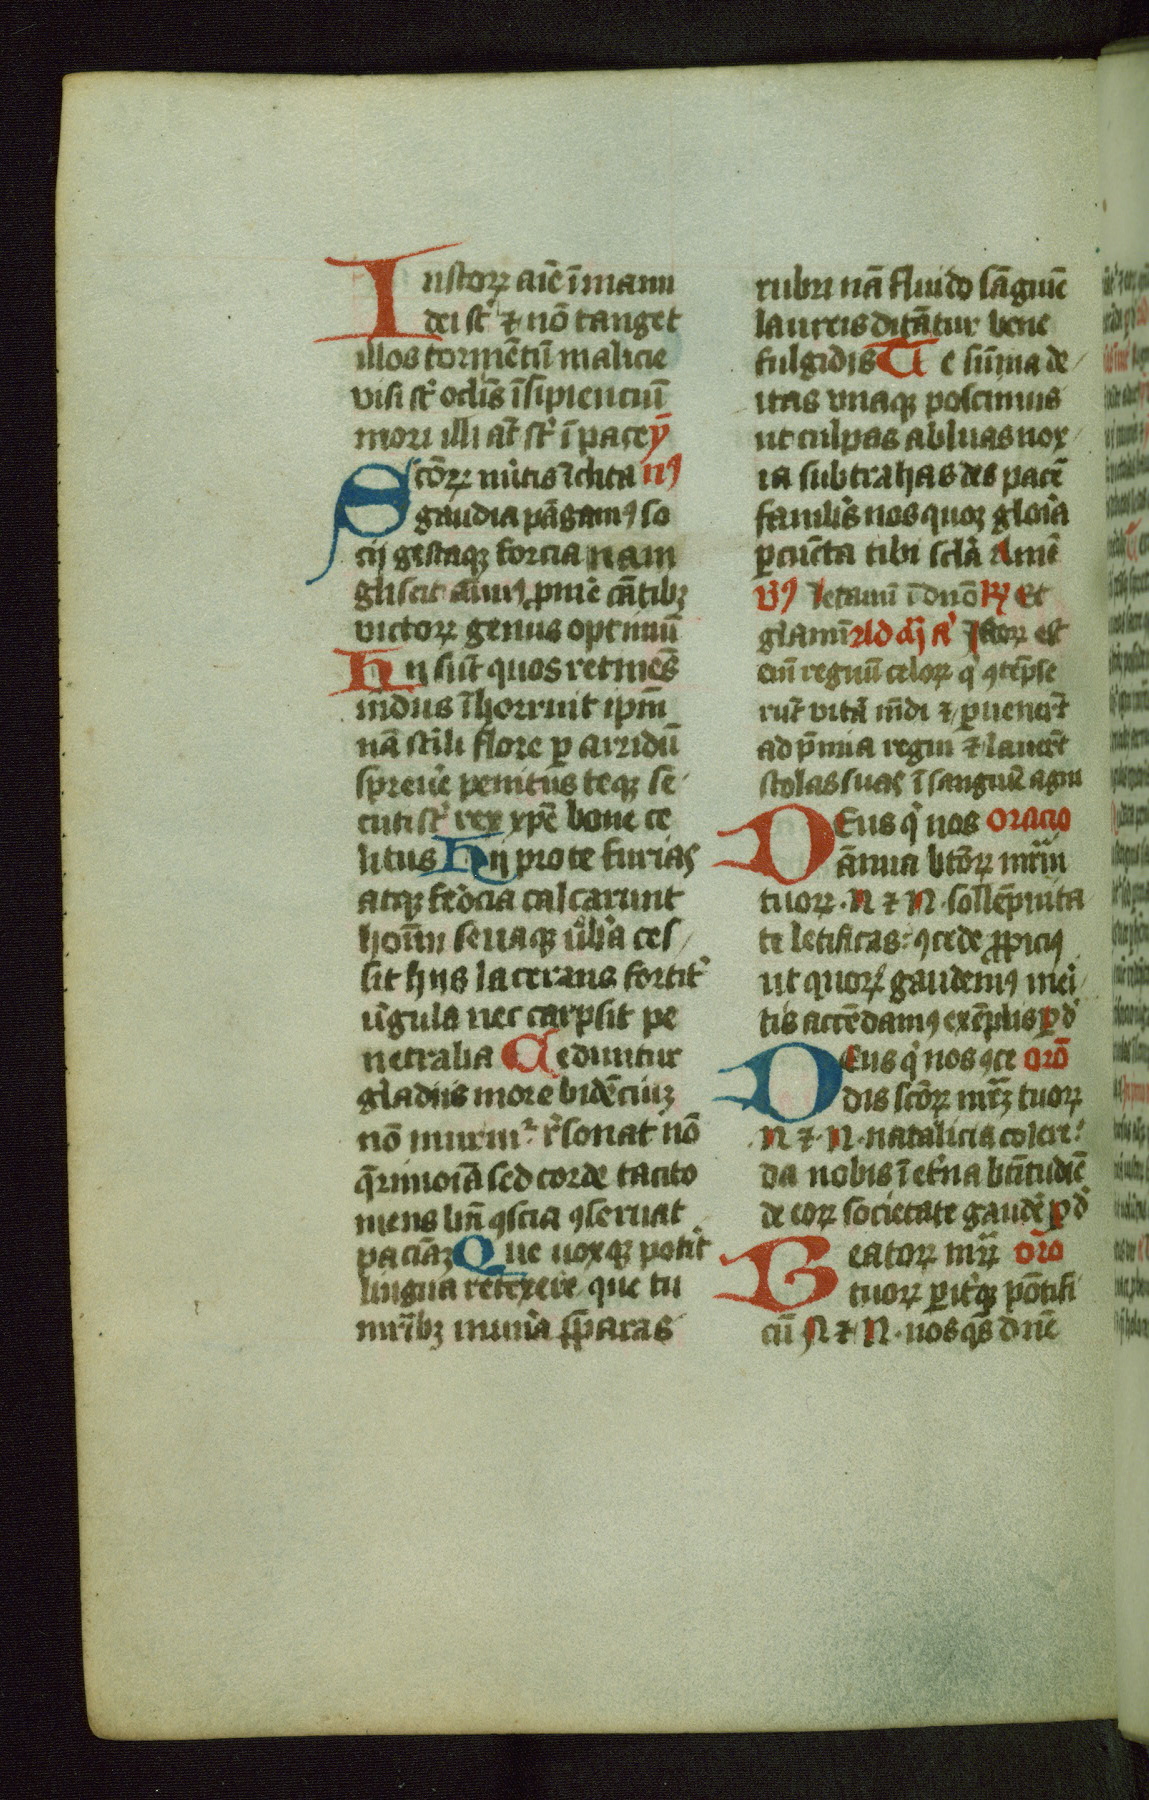 Iustoꝝ aīe ī manu
dei st᷑ ⁊ nō tanget
illos tormētū malicie
visi st᷑ oclīs īsipienciū
mori illi aūt st᷑ ī pace ẏ
Sctōꝝ mi᷑tis īclita n⁹
gaudia pāgam⁹ so
cij gestaqꝫ forcia nam
gliscit aīm⁹ ꝓmē cātibꝫ
victoꝝ genus optimū
Hij sūt quos retinēs
mūdus īhorruit ip̄m
nā st᷑ili flore ꝑ aridū
spreuē penitus teqꝫ se
cuti st᷑ rex xp̄e bone ce
litus Hij pro te furias
atqꝫ ferocia calcarunt
hoīm seuaqꝫ ūba ces
sit hijs lacerans fortit᷑
ūgula nec carpsit pe
netralia Ceduntur
gladiis more bidēciuꝫ
nō murm᷑ r᷑sonat nō
q̄rimoīa sed corde tacito
mens bn̄ ꝯscia ꝯseruat
paciāꝫ Que uoxqꝫ potit᷑
lingua retexere que tu
mr̄ibꝫ mun᷑a p̄paras
rubri nā fluido sāguīe
laureis ditātur bene
fulgidis Te sūma de
itas vnaqꝫ poscimus
ut culpas abluas nox
ia subtrahas des pacē
famul᷑is nos quoꝫ gloīā
ꝑcūcta tibi sclā Amē
V⁹ letami ī dn̄o R⁊ Et
glamī Ad ij a᷑ Istoꝝ est
eni regnū celoꝝ q᷑ ꝯtēpse
rūt vitā mūdi ⁊ ꝑuener̄t
ad p̄mia regni ⁊ lauer̄t
stolas suas ī sanguīe agni
DEus q᷑ nos oracio
ānua btōꝝ mr̄iū
tuoꝝ N ⁊ N sollēpnita
te letificas ꝯcede ꝓpici⁹
ut quoꝝ gaudem⁹ mei
tis accēdam⁹ exēplis ꝑ d᷑
DEus q᷑ nos ꝯce orō
dis sctōꝝ mr̄ꝫ tuoꝝ
N ⁊ N natalicia colere
da nobis ī et᷑na btītudīe
de eoꝝ societate gaudē ꝑ d᷑
Beatoꝝ mr̄ꝝ oro
tuoꝝ ꝑit᷑qꝫ pōtifi
cū N ⁊ N nos q̄s dn̄e